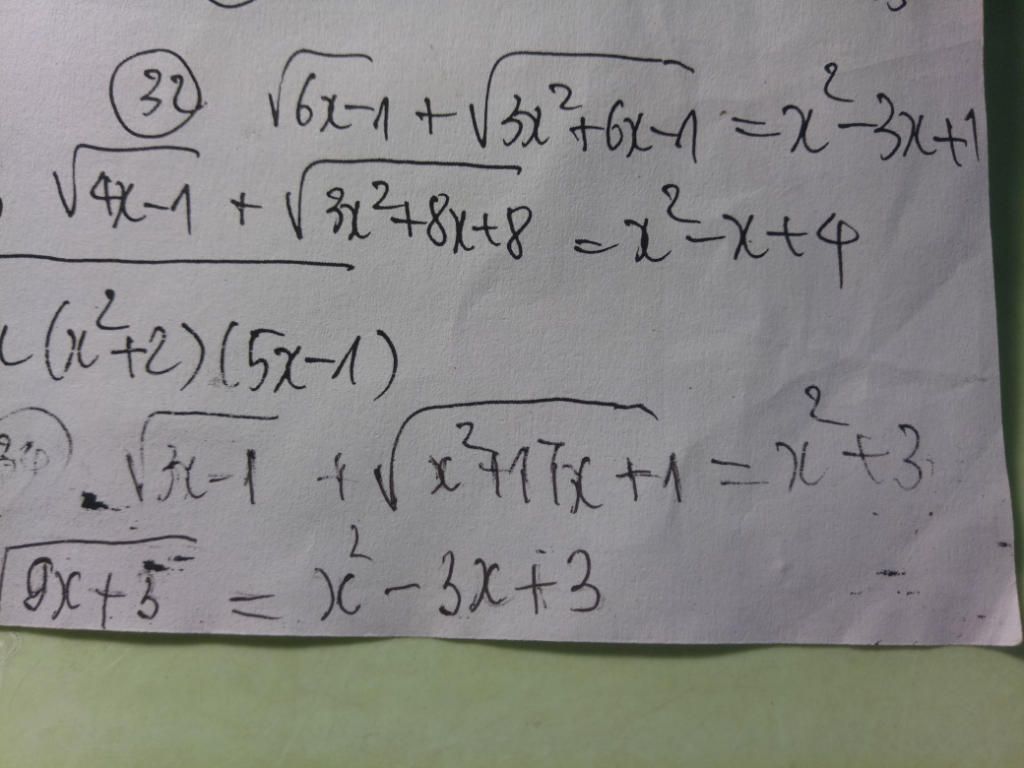 (32) √(6x-1) + √(3x²+6x-1) = x²-3x+1
√(4x-1) + √(3x²+8x+8) = x²-x+4
(x²+2)(5x-1)
√(3x-1) + √(x²+17x+1) = x²+3
= x²-3x+3